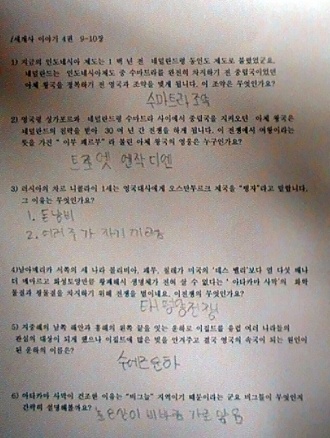 /세계사 이야기 4권  9-10장
1) 지금의 인도네시아 제도는 1 백 년 전  네덜란드령 동인도 제도로 불렸었군요.
네덜란드는  인도네시아제도 중 수마트라를 완전히 차지하기 전 중립국이었던
아체 왕국을 정복하기 전 영국과 조약을 맺게 됩니다. 이 조약은 무엇인가요?
수마트라 조약
2) 영국령 싱가포르와  네덜란드령 수마트라 사이에서 중립국을 지켜오던  아체 왕국은
네덜란드의 침략을 받아  30 여 년 간 전쟁을 하게 됩니다. 이 전쟁에서 여왕이라는
뜻을 가진 " 이부 페르부" 라 불린 아체 왕국의 영웅은 누구인가요?
트로엣 엔작 디엔
3) 러시아의 차르 니콜라이 1세는 영국대사에게 오스만투르크 제국을 "병자"라고 말합니다.
그 이유는 무엇인가요?
1. 돈낭비
2. 여러
4)남아메리카 서쪽의 세 나라 볼리비아, 페루, 칠레가 미국의 '데스 벨리'보다 열 다섯 배나
더 메마르고 화성토양만큼 황폐해서 생명체가 전혀 살 수 없다는 ' 아타카마 사막'의 화학
물질과 광물질을 차지하기 위해 전쟁을 벌이네요. 이전쟁의 무엇인가요?
태평양전쟁
5) 지중해의 남쪽 해안과 홍해의 위쪽 끝을 잇는 운하로 이집트를 유럽 여러 나라들의
관심의 대상이 되게 했으나 이집트에 많은 빚을 안겨주고 결국 영국의 속국이 되는 원인이
된 운하의 이름은?
수에즈운하
6) 아타카마 사막이 건조한 이유는 "비그늘" 지역이기 때문이라는 군요 비그늘이 무엇인지
간략히 설명해볼까요?
높은산이 비구름 가로 막음